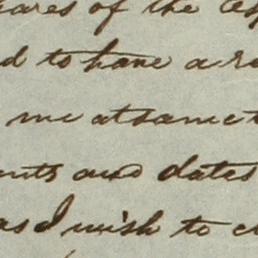 ares of the
d to have a
me at same
nts and dates
as I wish to